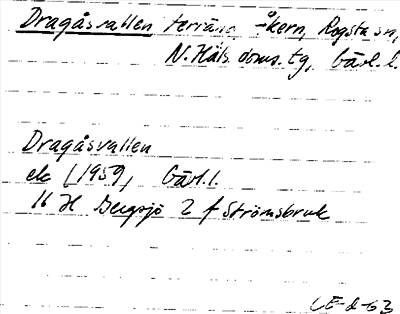 Dragåsvallen terräng Åkern, Rogsta sn,
N. Häls. doms. tg, Gävl. l.
Dragåsvallen
ek (1959, Gävl. l.
16 H Bergsjö 2 f Strömsbruk
CE-d-63